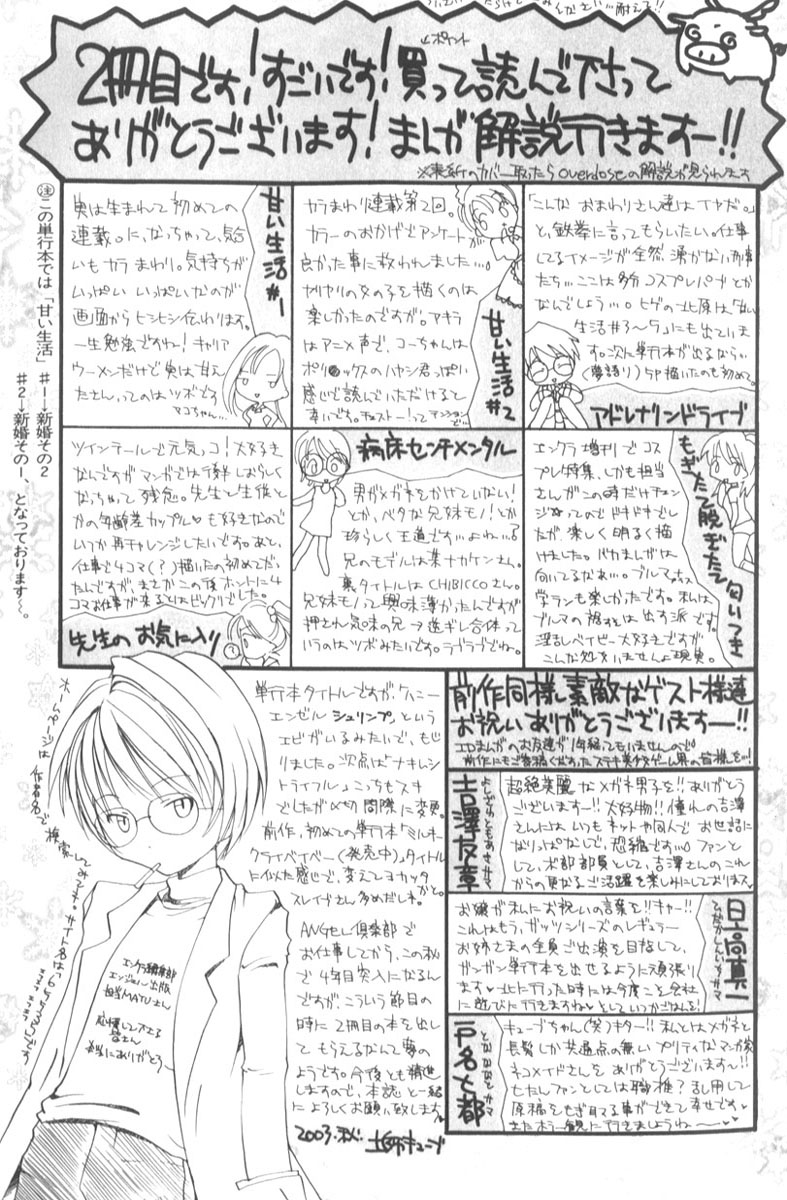 2冊目です!すごいです!買って読んで下さって
ありがとうございます!まんが解説行きますー!!
ポイント
※表紙のカバー取ったらoverdoseの解説が見られます
㊟この単行本では「甘い生活」 #1→新婚その2
#2→新婚その1、となっております〜。
甘い生活#1
実は生まれて初めての
連載。に、なっちゃって、気合
いもカラまわり。気持ちが
いっぱい いっぱいなのが
画面からヒシヒシ伝わります。
一生勉強ですね!キャリア
ウーメンだけで実は甘え
たさんってのはツボです
マコちゃん…
甘い生活#2
カラまわり連載第2回。
カラーのおかげでアンケートが
良かった事に救われました…。
ヤリヤリの女の子を描くのは
楽しかったのですが。アキラ
はアニメ声で、コーちゃんは
感じで読んでいただけると
幸いです。
アドレナリンドライブ
「こんな おまわりさん達はイヤだ。」
と、鉄拳に言ってもらいたい。仕事
してるイメージが全然、湧かない刑事
たち…ここは多分コスプレパブとか
なんでしょう…。ヒゲの北原は「甘い
生活#3〜5」にも出ていま
す。次に単行本が出るなら…
(夢語り)5P描いたのも初めて。
先生のお気に入り
ツインテールで元気っコ!大好き
なんですがマンガでは
なっちゃって残念。先生と生徒と
かの年齢差カップル♥も好きなので
いつか再チャレンジしたいです。あと、
仕事で4コマ(?)描いたの初めてだっ
たんですが、まさかこの後ホントに4
コマお仕事が来るとはビックリでした。
病床センチメンタル
男がメガネをかけていない!
とか、ベタな兄妹モノ!とか
珍らしく王道です…よね…?
兄のモデルは某ナカケンさん。
裏タイトルはCHIBICCOさん。
兄妹モノって興味薄かったんですが
押され気味の兄→逆ギレ合体って
いうのはツボみたいです。ラブラブでね。
もぎたて脱ぎたて匂いつき
エンクラ増刊でコス
プレ特集、しかも担当
さんがこの時だけチェン
ジ ってのでドキドキでし
たが、楽しく明るく描
けました。バカまんがは
向いてるなあ…。ブルマ
学ランも楽しかったです。私は
ブルマの裾は出す派です。
淫乱ベイビー大好きですが
こんな処女いませんよ現実。
単行本タイトルですが「ハニー
エンゼルシュリンプ」という
エビがいるみたいで、もじ
りました。次点は「ナキムシ
トライフル」こっちもスキ
でしたが〆切間際に変更。
前作、初めての単行本「ミルキー
クライベイベー(発売中)」タイトル
に似た感じで、変えてヨカッタ
かと。
スレイブさん多めだしネ。
ANGEL倶楽部で
お仕事してから、この秋
で4年目突入になるん
ですが、こういう節目の
時に2冊目の本を出し
てもらえるなんて夢の
ようです。今後とも精進
しますので、本誌と一緒
によろしくお願い致します。
2003.秋. 土師キューブ
ホームページは作者名で検索してみて下さい。
エンクラ編集部
エンジェル出版
担当MAYUさん
応援して下さる
皆さん
本当にありがとう〜
前作同様、素敵なゲスト様達
お祝いありがとうございますー!!
エロまんがのお友達が1年経ってもいませんので
吉澤友章
よしざわともあきサマ
超絶美麗なメガネ男子を!!ありがとう
ございますー!!大好物!!憧れの吉澤
さんには、いつもネットや同人でお世話に
なりっぱなしで、恐縮です…。ファン
として、本部部員として、吉澤さんのこれ
からの更なるご活躍を楽しみにしておりまス。
日高真一
ひだかしんいちサマ
お嬢が私にお祝いの言葉を!!キャー!!
これはもう、ガッツシリーズのレギュラー
お姉さまの全員ご出演を目指して、
ガンガン単行本を出せるように頑張り
ます♥北に行った時には今度こそ会社
に遊びに行きますね♥としていつかごはんを!
戸名七都
となななとサマ
キューブちゃん(笑)キター!!私とはメガネと
長髪しか共通点の無いプリティなマンガ家
ネコメイドさんをありがとうございます〜!!
もたしファンとしては職権?乱用して
原稿をもぎ取る事ができて幸せです♥
またホラー観に行きましょうね〜